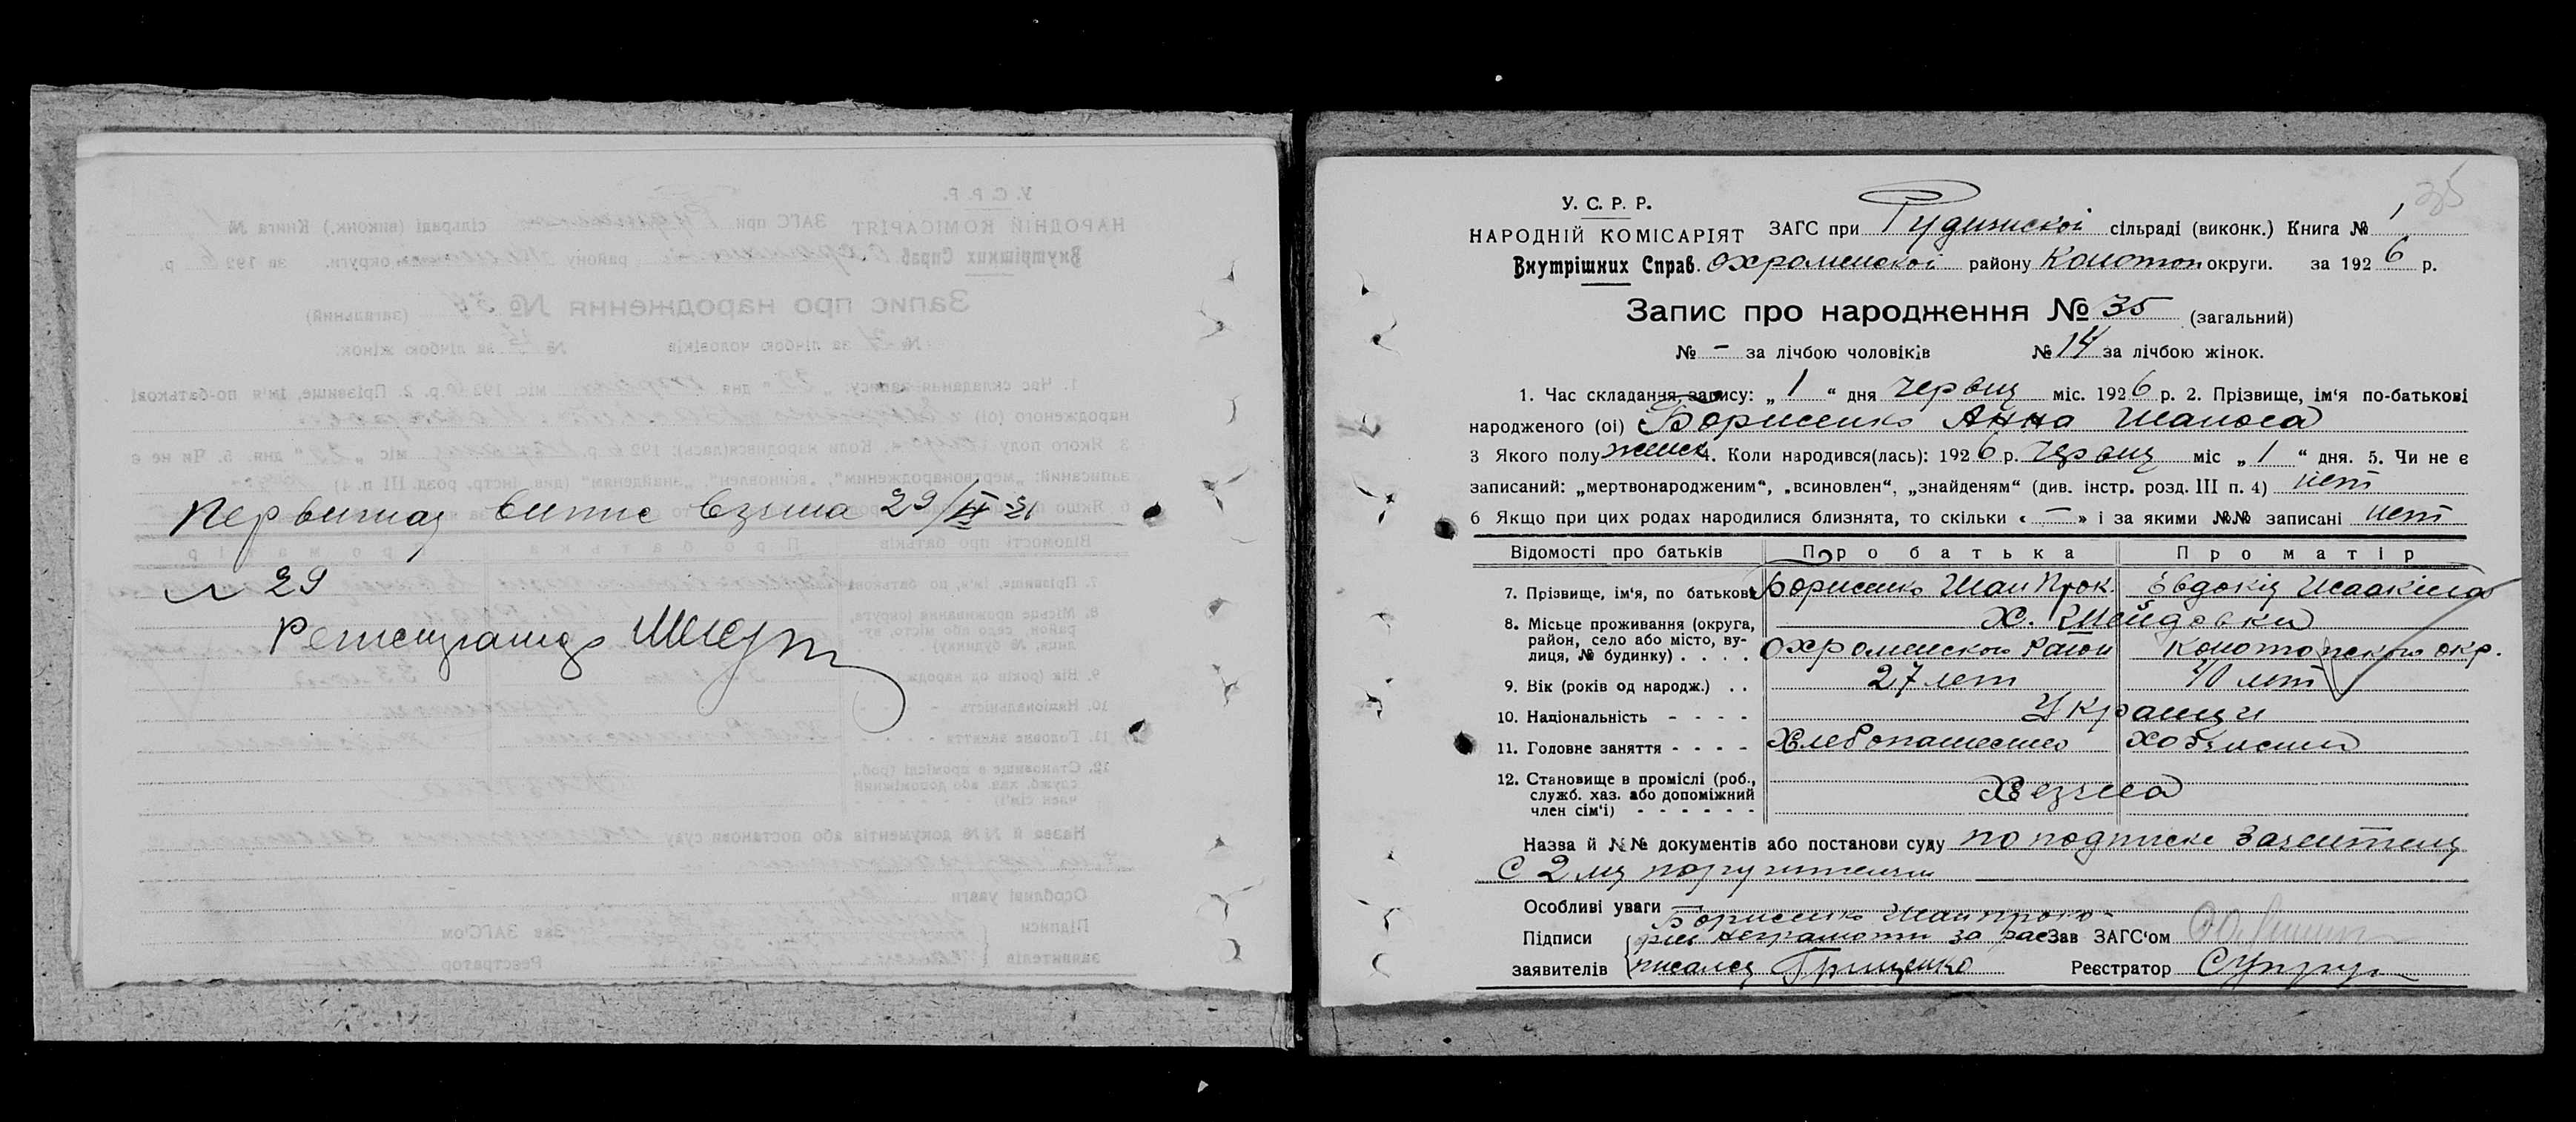 Первичная випис взята 29/IX 31
№ 29
35
У. С. Р. Р.
НАРОДНІЙ КОМІСАРІЯТ
Внутрішних Справ.
ЗАГС при Рудинской сільраді (виконк.) Книга № 1
Охраменской району Конотоп округи. за 1926 р.
Запис про народження № 35 (загальний)
№ – за лічбою чоловіків № 14 за лічбою жінок.
1. Час складання запису: „ 1 “ дня червця міс. 1926 р. 2. Прізвище, ім'я по-батькові
народженого (ої) Борисенко Анна Иванова
3 Якого полу женск 4. Коли народився(лась): 1926 р. червця міс „ 1 “ дня. 5. Чи не є
записаний: „мертвонародженим“, „всиновлен“, „знайденям“ (див. інстр. розд. III п. 4) нет
6 Якщо при цих родах народилися близнята, то скільки « – » і за якими №№ записані нет
Відомості про батьків Про батька Про матір
7. Прізвище, ім'я, по батькові Борисенко Иван Прок. Евдокия Исаакиева
8. Місьце проживання (округа, район, село або місто, вулиця, № будинку) . . . . Х.
Охраменского Район Конотопского окр.
9. Вік (років од народж.) . . 27 лет 40 лет
10. Національність - - - - Украинци
11. Головне заняття - - - - Хлебопашество
12. Становище в промислі (роб., служб. хаз. або допоміжний член сім'і) - - - - - -
Назва й №№ документів або постанови суду по подписке заявителя
С 2 мя поручителями
Особливі уваги
Підписи заявителів Борисенко Иван Проко-
фиев неграмотн за рас
писался Грищенко
Зав ЗАГС'ом
Реєстратор